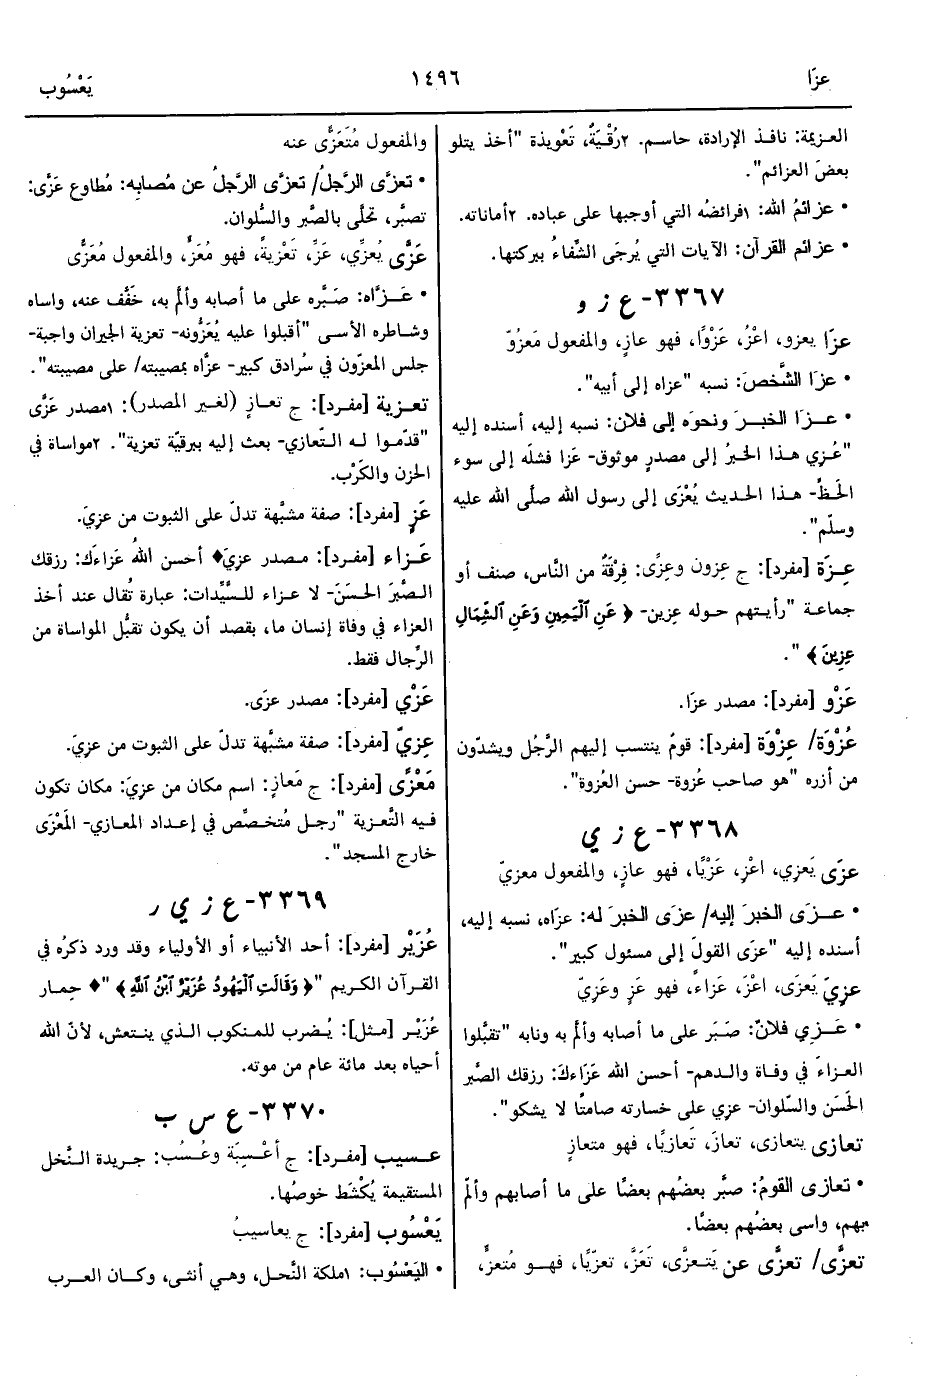 عزَا
١٤٩٦
يَعْسُوب
العزيمة: نافذ الإرادة، حاسم. ٢رُقْيَةٌ، تَعْويذة "أخذ يتلو
بعضَ العزائم".
• عزائمُ الله: ١فرائضُه التي أوجبها على عباده. ٢أماناته.
• عزائم القرآن: الآيات التي يُرجَى الشِّفاءُ ببركتها.
٣٣٦٧- ع ز و
عزَا يعزو، اعْزُ، عَزْوًا، فهو عازٍ، والمفعول مَعزُوّ
• عزَا الشَّخصَ: نسبه "عزاه إلى أبيه".
• عـزا الخبـرَ ونحوَه إلى فلان: نسبه إليه، أسنده إليه
"عُزي هـذا الخبرُ إلى مصدرٍ موثوق- عَزا فشلَه إلى سوء
الحَظِّ- هـذا الحديث يُعْزَى إلى رسول الله صلَّى الله عليه
وسلَّم".
عِـزَة [مفرد]: ج عِزون وعِزًى: فِرْقَةٌ من النَّاس، صنف أو
جماعة "رأيتهم حوله عِزين- ﴿ عَنِ الْيَمِينِ وَعَنِ الشِّمَالِ
عِزِينَ ﴾ ".
عَزْو [مفرد]: مصدر عزَا.
عُزْوَة/ عِزْوَة [مفرد]: قومٌ ينتسب إليهم الرَّجُل ويشدّون
من أزره "هو صاحب عُزوة- حسن العُزوة".
٣٣٦٨- ع ز ي
عزَى يَعزِي، اعْزِ، عَزْيًا، فهو عازٍ، والمفعول معزيّ
• عــزَى الخبرَ إليه/ عزَى الخبرَ له: عزَاه، نسبه إليه،
أسنده إليه "عزَى القولَ إلى مسئول كبير".
عزِيَ يَعزَى، اعْزَ، عَزاء، فهو عَزٍ وعَزِيّ
• عَـزِي فلانٌ: صَبَر على ما أصابه وألمَّ به ونابه "تقبَّلوا
العـزاءَ في وفاة والـدهم- أحسن الله عَزَاءكَ: رزقك الصَّبر
الحَسَن والسّلوان- عزِي على خسارته صامتًا لا يشكو".
تعازى يتعازى، تعازَ، تَعازيًا، فهو متعازٍ
• تعازى القومُ: صبَّر بعضُهم بعضًا على ما أصابهم وألمّ
بهم، واسى بعضُهم بعضًا.
تعزَّى/ تعزَّى عن يَتـعزَّى، تَعَزَّ، تعزّيًا، فهــو مُتعزٍّ،
والمفعول مُتَعَزًّى عنه
• تعزَّى الرَّجلُ/ تعزَّى الرَّجلُ عن مُصابِه: مُطاوع عَزَّى:
تصبَّر، تحلَّى بالصَّبر والسُّلوان.
عَزَّى يُعزِّي، عَزِّ، تَعْزيةً، فهو مُعَزٍّ، والمفعول مُعَزًّى
• عَـزَّاه: صَبَّره على ما أصابه وألمَّ به، خَفَّف عنه، واساه
وشاطره الأسى "أقبلوا عليه يُعَزُّونه- تعزية الجيران واجبة-
جلس المعزّون في سُرادق كبير- عزَّاه بمصيبته/ على مصيبته".
تعزية [مفـرد]: ج تعـازٍ (لغـير المصدر): ١مصدر عَزَّى
"قدّمـوا لـه التّعازي- بعث إليه ببرقيّة تعزية". ٢مواساة في
الحزن والكَرْب.
عَزٍ [مفرد]: صفة مشبَّهة تدلّ على الثبوت من عزِيَ.
عَـزاء [مفـرد]: مـصدر عزِيَ♦ أحسن اللهُ عَزاءَك: رزقك
الـصَّبْرَ الحَسَنَ- لا عـزاء للـسَّيِّدات: عبارة تُقال عند أخذ
العزاء في وفاة إنسان ما، بقصد أن يكون تقبُّل المواساة من
الرِّجال فقط.
عَزْي [مفرد]: مصدر عزَى.
عزِيّ [مفرد]: صفة مشبَّهة تدلّ على الثبوت من عزِيَ.
مَعْزًى [مفرد]: ج مَعازٍ: اسم مكان من عزِيَ: مكان تكون
فـيه التَّعزية "رجـل مُتخـصِّص في إعـداد المعـازي- المَعْزَى
خارج المسجد".
٣٣٦٩- ع ز ي ر
عُزَيْر [مفرد]: أحد الأنبياء أو الأولياء وقد ورد ذكرُه في
القـرآن الكـريم "﴿ وَقَالَتِ الْيَهُودُ عُزَيْرٌ ابْنُ اللَّهِ ﴾ "♦ حِمـار
عُزَيْـر [مـثل]: يُـضرب للـمنكوب الـذي ينـتعش، لأنّ الله
أحياه بعد مائة عام من موته.
٣٣٧٠- ع س ب
عـسيب [مفـرد]: ج أعْـسِبَة وعُـسُب: جـريدة الـنَّخل
المستقيمة يُكْشَط خوصُها.
يَعْسُوب [مفرد]: ج يعاسيبُ
• اليَعْسُوب: ١ملكة النَّحـل، وهـي أنثى، وكـان العـرب